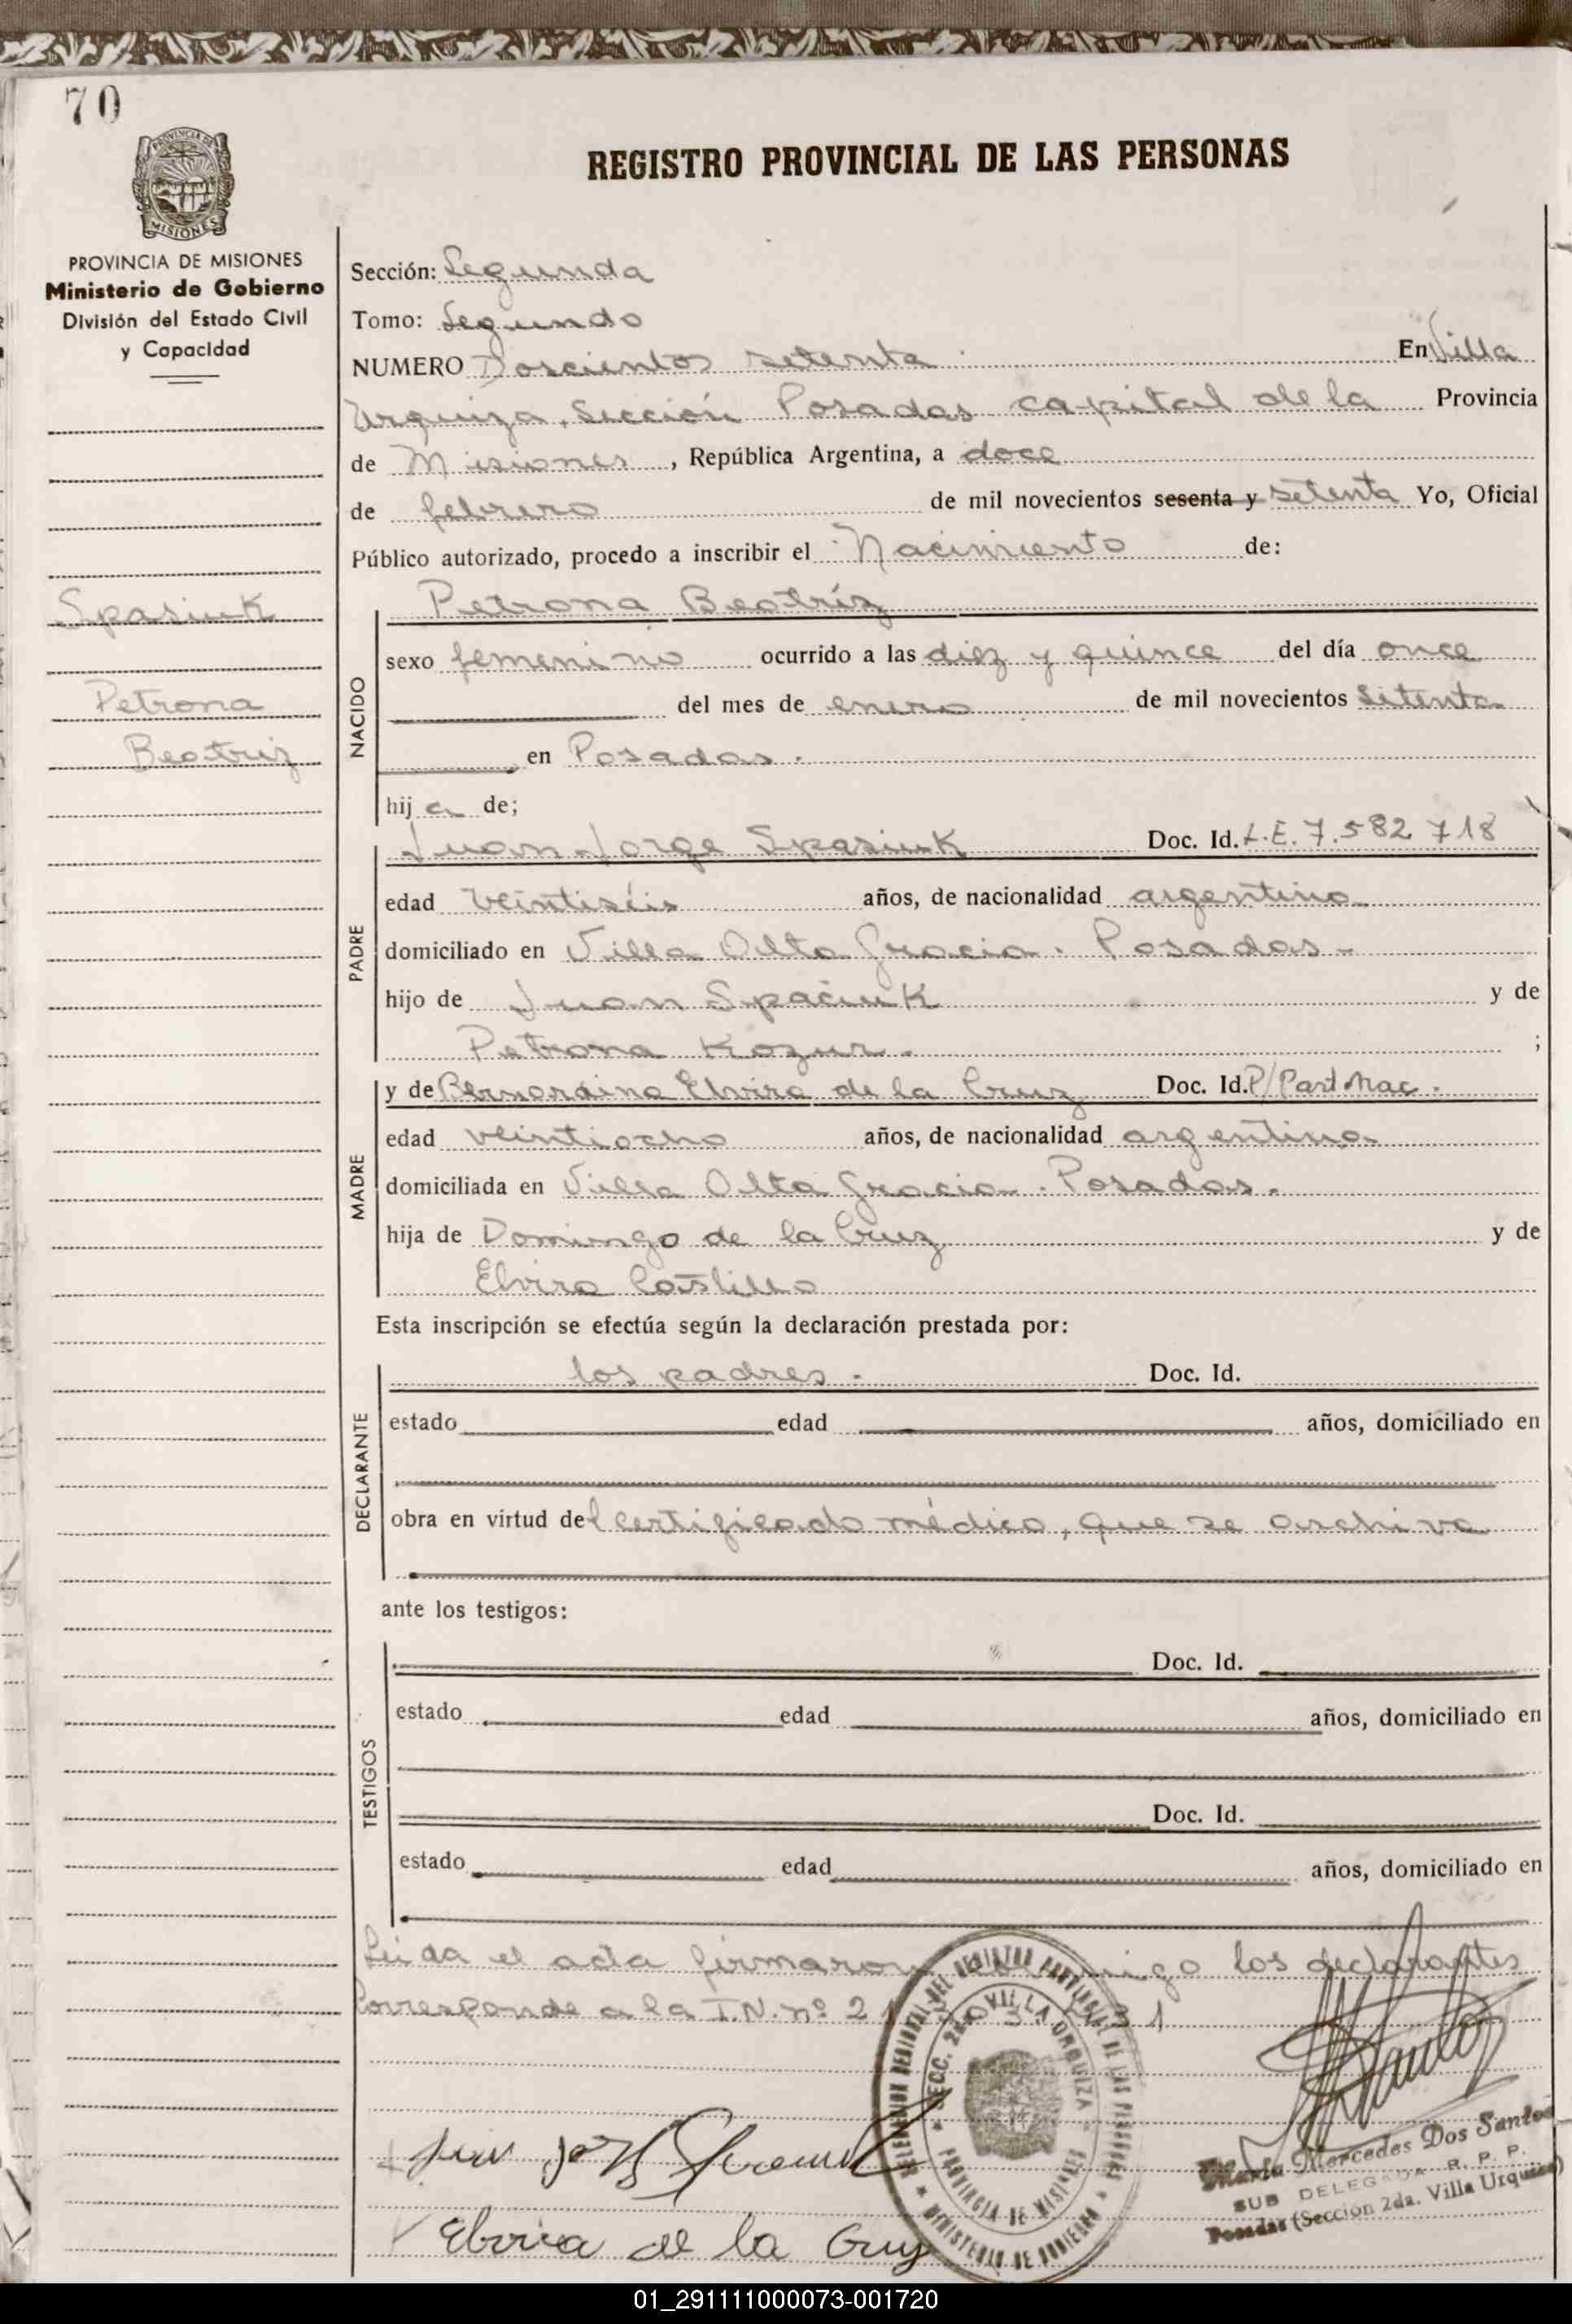 70
PROVINCIA DE
MISIONES
REGISTRO PROVINCIAL DE LAS PERSONAS
PROVINCIA DE MISIONES
Ministerio de Gobierno
División del Estado Civil
y Capacidad
Spasiuk
Petrona
Beatriz
Sección: Segunda
Tomo: Segundo
NUMERO Doscientos setenta En Villa
Urquiza, Sección Posadas capital de la Provincia
de Misiones, República Argentina, a doce
de febrero de mil novecientos sesenta y setenta Yo, Oficial
Público autorizado, procedo a inscribir el Nacimiento de:
Petrona Beatríz
NACIDO
sexo femenino ocurrido a las diez y quince del día once
del mes de enero de mil novecientos setenta
en Posadas.
hija de;
PADRE
Juan Jorge Spasiuk Doc. Id. L.E. 7.582.718
edad veintiséis años, de nacionalidad argentina
domiciliado en Villa Alta Gracia. Posadas-
hijo de Juan Spaciuk y de
Petrona Kozur. ;
MADRE
y de Bernardina Elvira de la Cruz Doc. Id. P/Part Nac.
edad veintiocho años, de nacionalidad argentina
domiciliada en Villa Alta Gracia. Posadas.
hija de Domingo de la Cruz y de
Elvira Castillo
Esta inscripción se efectúa según la declaración prestada por:
DECLARANTE
los padres. Doc. Id.
estado edad años, domiciliado en
obra en virtud del certificado médico, que se archiva
ante los testigos:
TESTIGOS
Doc. Id.
estado edad años, domiciliado en
Doc. Id.
estado edad años, domiciliado en
Leída el acta firmaron los declarantes
Corresponde a la I.N. nº 21
DELEGACION REGIONAL DEL REGISTRO PROVINCIAL DE LAS PERSONAS
SECC. 2da. VILLA URQUIZA
PROVINCIA DE MISIONES
MINISTERIO DE GOBIERNO
Elvira de la Cruz
María Mercedes Dos Santos
SUB DELEGADA R. P. P.
Posadas (Sección 2da. Villa Urquiza)
01_291111000073-001720